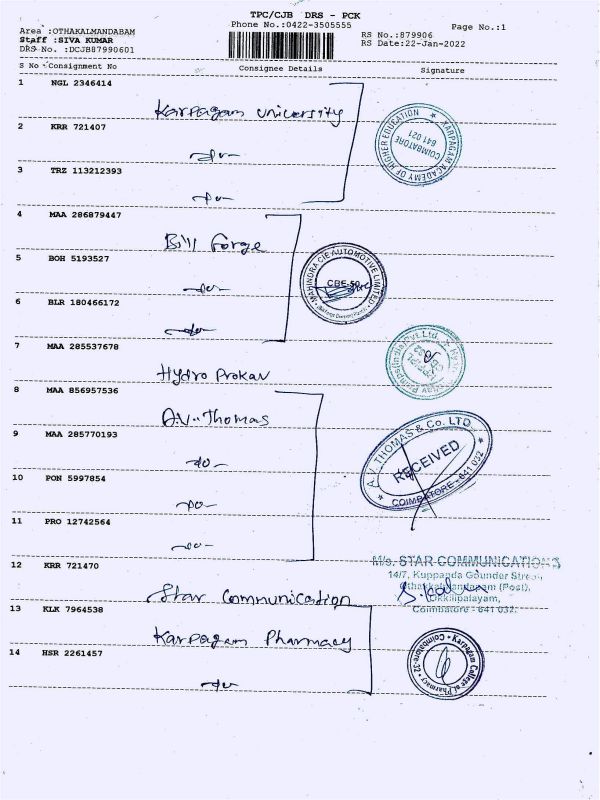 TPC/CJB DRS - PCK
Area :OTHAKALMANDABAM
Phone No.:0422-3505555
Page No.:1
Staff :SIVA KUMAR
RS No.:879906
DRS No. :DCJB87990601
RS Date:22-Jan-2022
S No Consignment No Consignee Details Signature
1 NGL 2346414
Karpagam University
2 KRR 721407
-do-
3 TRZ 113212393
-do-
KARPAGAM ACADEMY OF HIGHER EDUCATION
COIMBATORE
641 021
4 MAA 286879447
Bill Forge
5 BOH 5193527
-do-
6 BLR 180466172
-do-
MAHINDRA CIE AUTOMOTIVE LIMITED
CBE-50
7 MAA 285537678
Hydro Prokav
Pumps (India) Pvt. Ltd.
8 MAA 856957536
A.V. Thomas
9 MAA 285770193
-do-
10 PON 5997854
-do-
11 PRO 12742564
-do-
A.V. THOMAS & Co. LTD.
RECEIVED
COIMBATORE - 641 032
12 KRR 721470
Star Communication
M/s. STAR COMMUNICATIONS
14/7, Kuppanda Gounder Street,
Othakkalmandapam (Post),
Okkilipalayam,
Coimbatore - 641 032.
13 KLK 7964538
Karpagam Pharmacy
14 HSR 2261457
-do-
Karpagam College of Pharmacy
Coimbatore-32